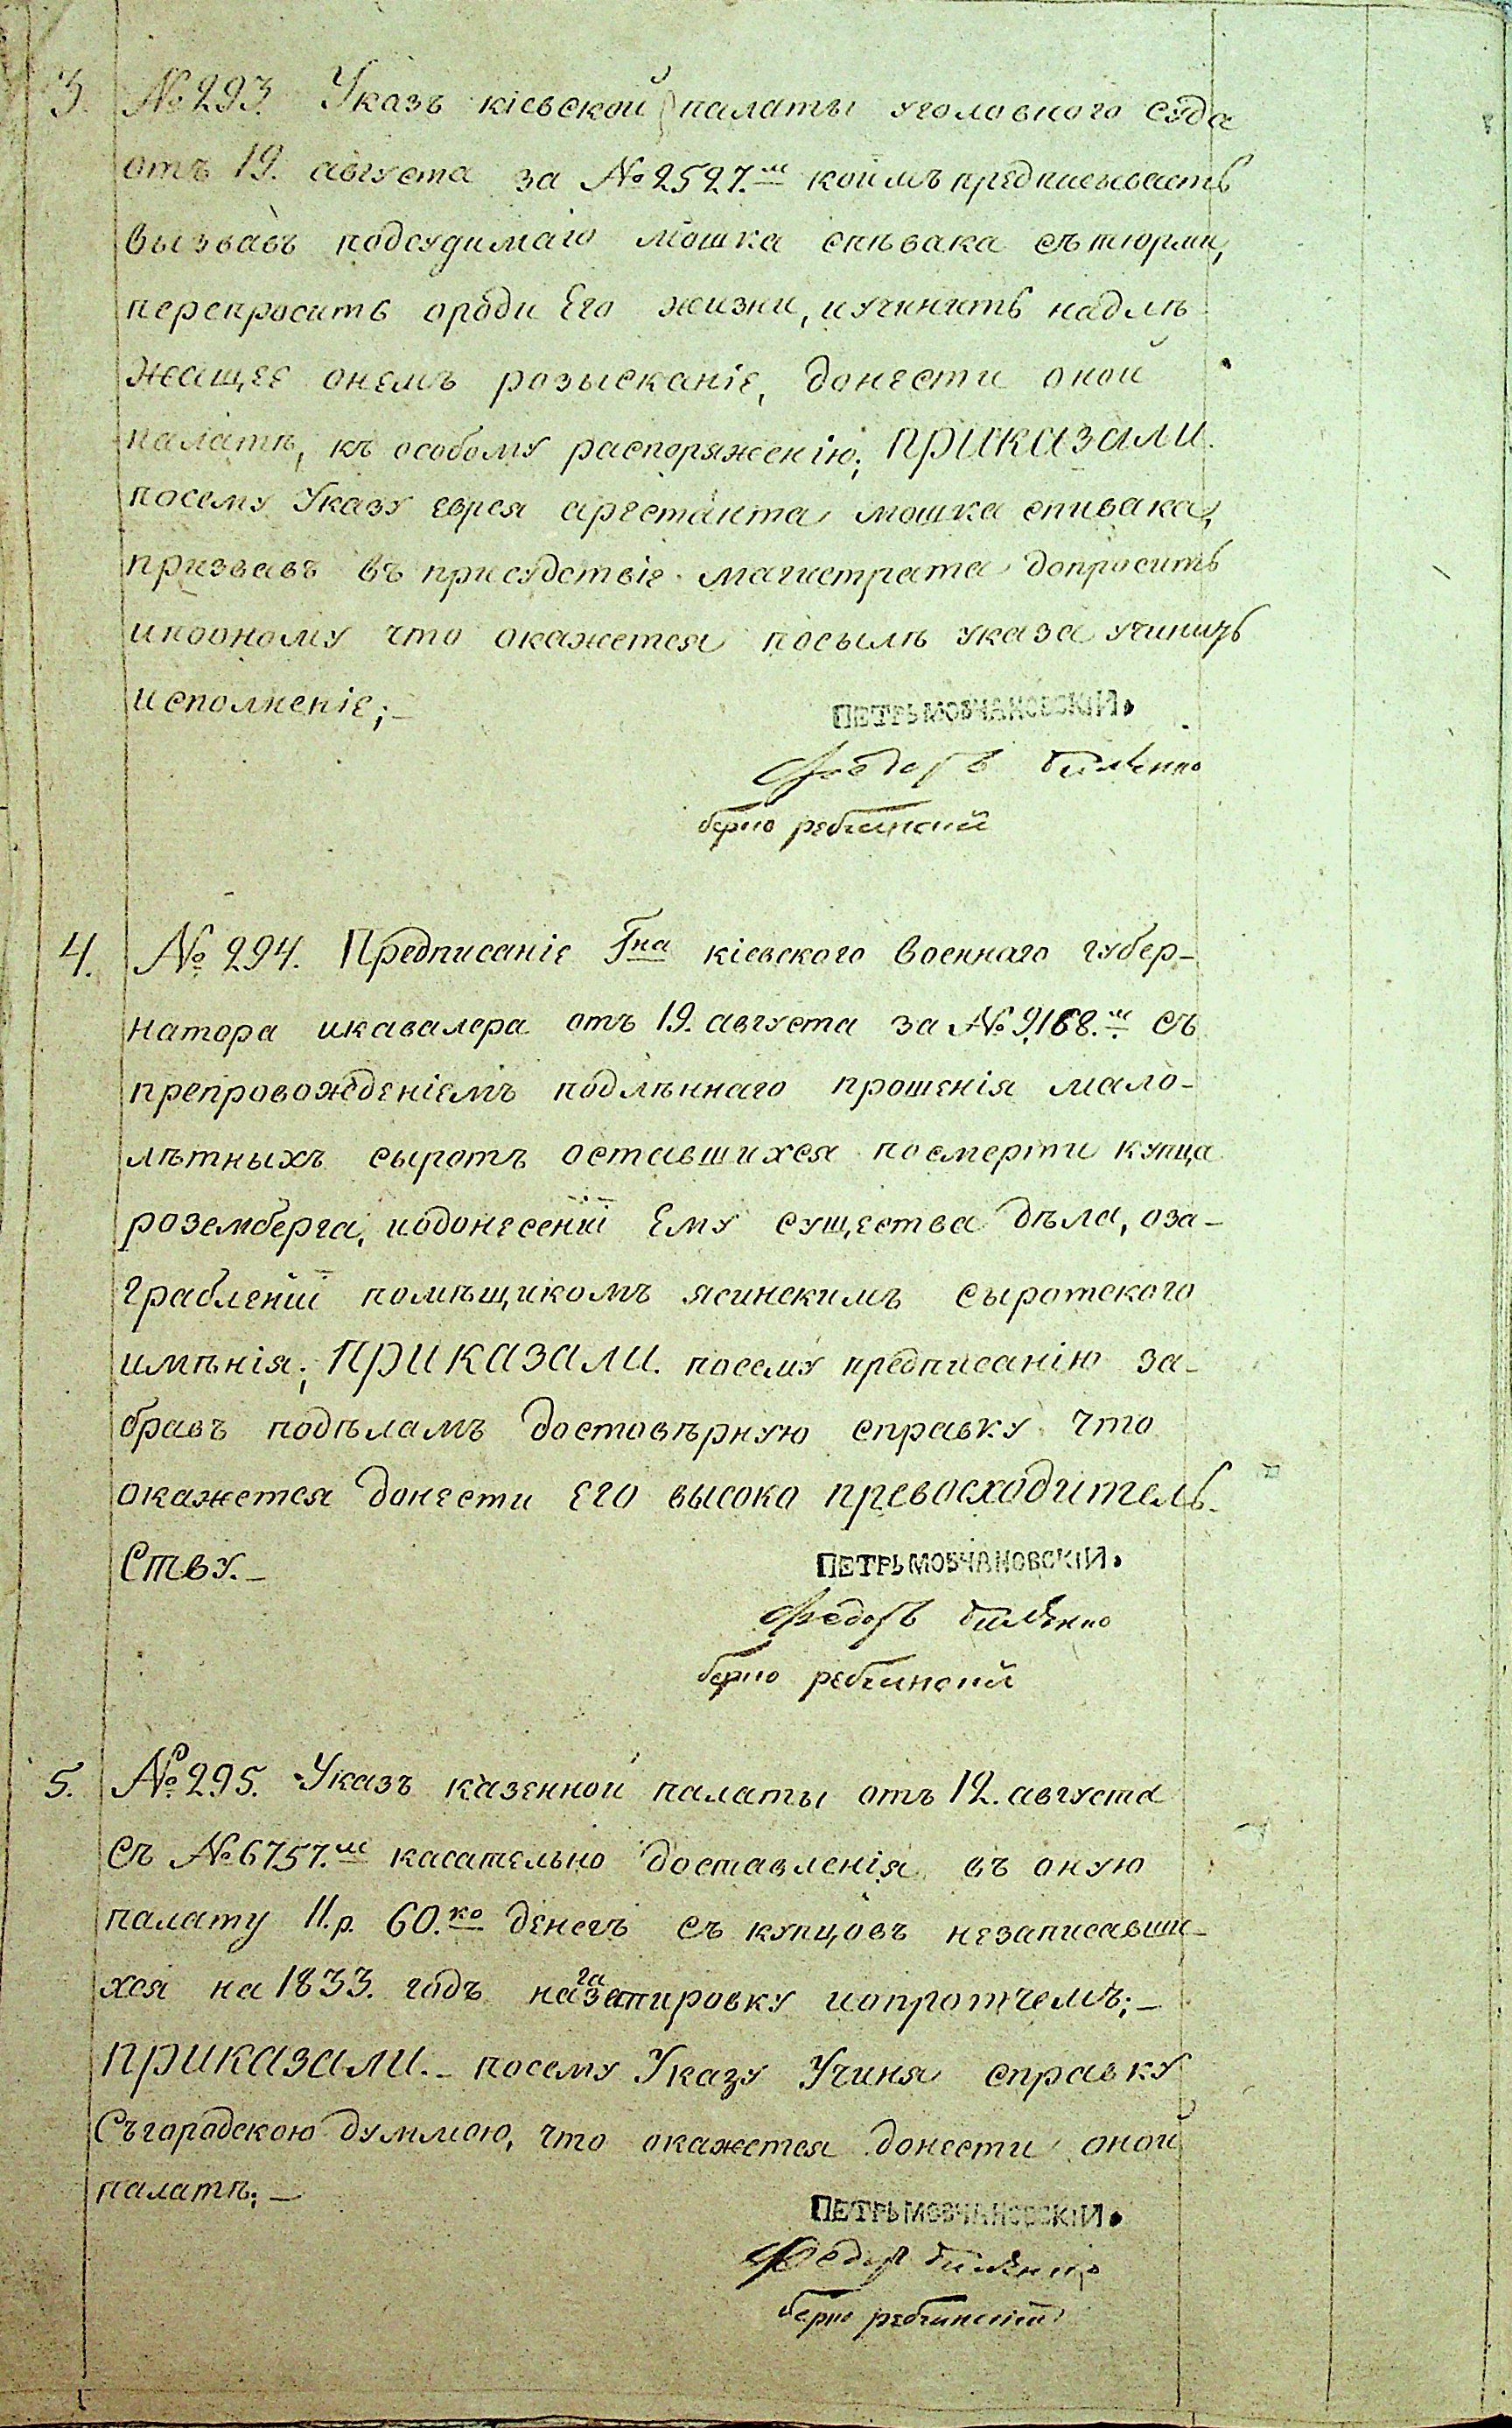 3. №293. Указъ кіевской палаты уголовного суда
отъ 19. августа за №2527.м коимъ предписываетъ
вызвавъ подсудимаго мошка спѣвака съ тюрми,
перепросить ороди Его жизни, иучинить надлѣ
жащее онемъ розысканіе, донести оной
палатѣ, къ особому распоряженію; приказали.
посему Указу еврея арестанта мошка спивака,
призвавъ въ присудствіе магистрата допросить
ипооному что окажется посылѣ указа учинить
исполненіе;–
ПЕТРЬ МОВЧАНОВСКІЙ.
Федоръ
берко
4. № 294. Предписаніе Гна кіевского военнаго губер–
натора икавалера отъ 19. августа за №9168.м съ
препровожденіемъ подлѣннаго прошенія мало–
лѣтныхъ сыротъ оставшихся посмерти купца
роземберга, иодонесеніи Ему существа дѣла, оза–
грабленіи помѣщикомъ ясинскимъ сыротского
имѣнія; приказали. посему предписанію за–
бравъ подѣламъ достовѣрную справку что
окажется донести его высоко превосходитель–
ству.–
ПЕТРЬ МОВЧАНОВСКІЙ.
Федоръ
берко
5. №295. Указъ казенной палаты отъ 12. августа
съ №6757.м касательно доставленія въ оную
палату 11.р. 60.ко денегъ съ купцовъ незаписавши–
хся на 1833. годъ назапировку иопротчемъ;–
приказали.– посему Указу Учиня справку
Съгородскою думмою, что окажется донести оной
палатѣ;–
ПЕТРЬ МОВЧАНОВСКІЙ.
Федор
берко